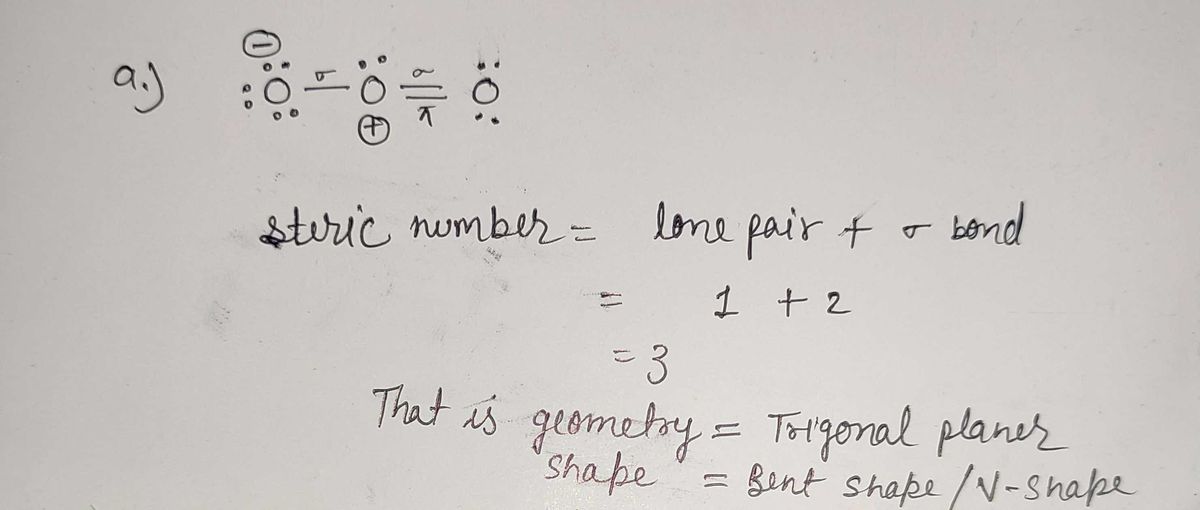 a.) :Ö:⊖ –σ– Ö⊕ =σ/π= Ö:
steric number = lone pair + σ bond
= 1 + 2
= 3
That is geometry = Trigonal planer
shape = Bent shape / V-shape